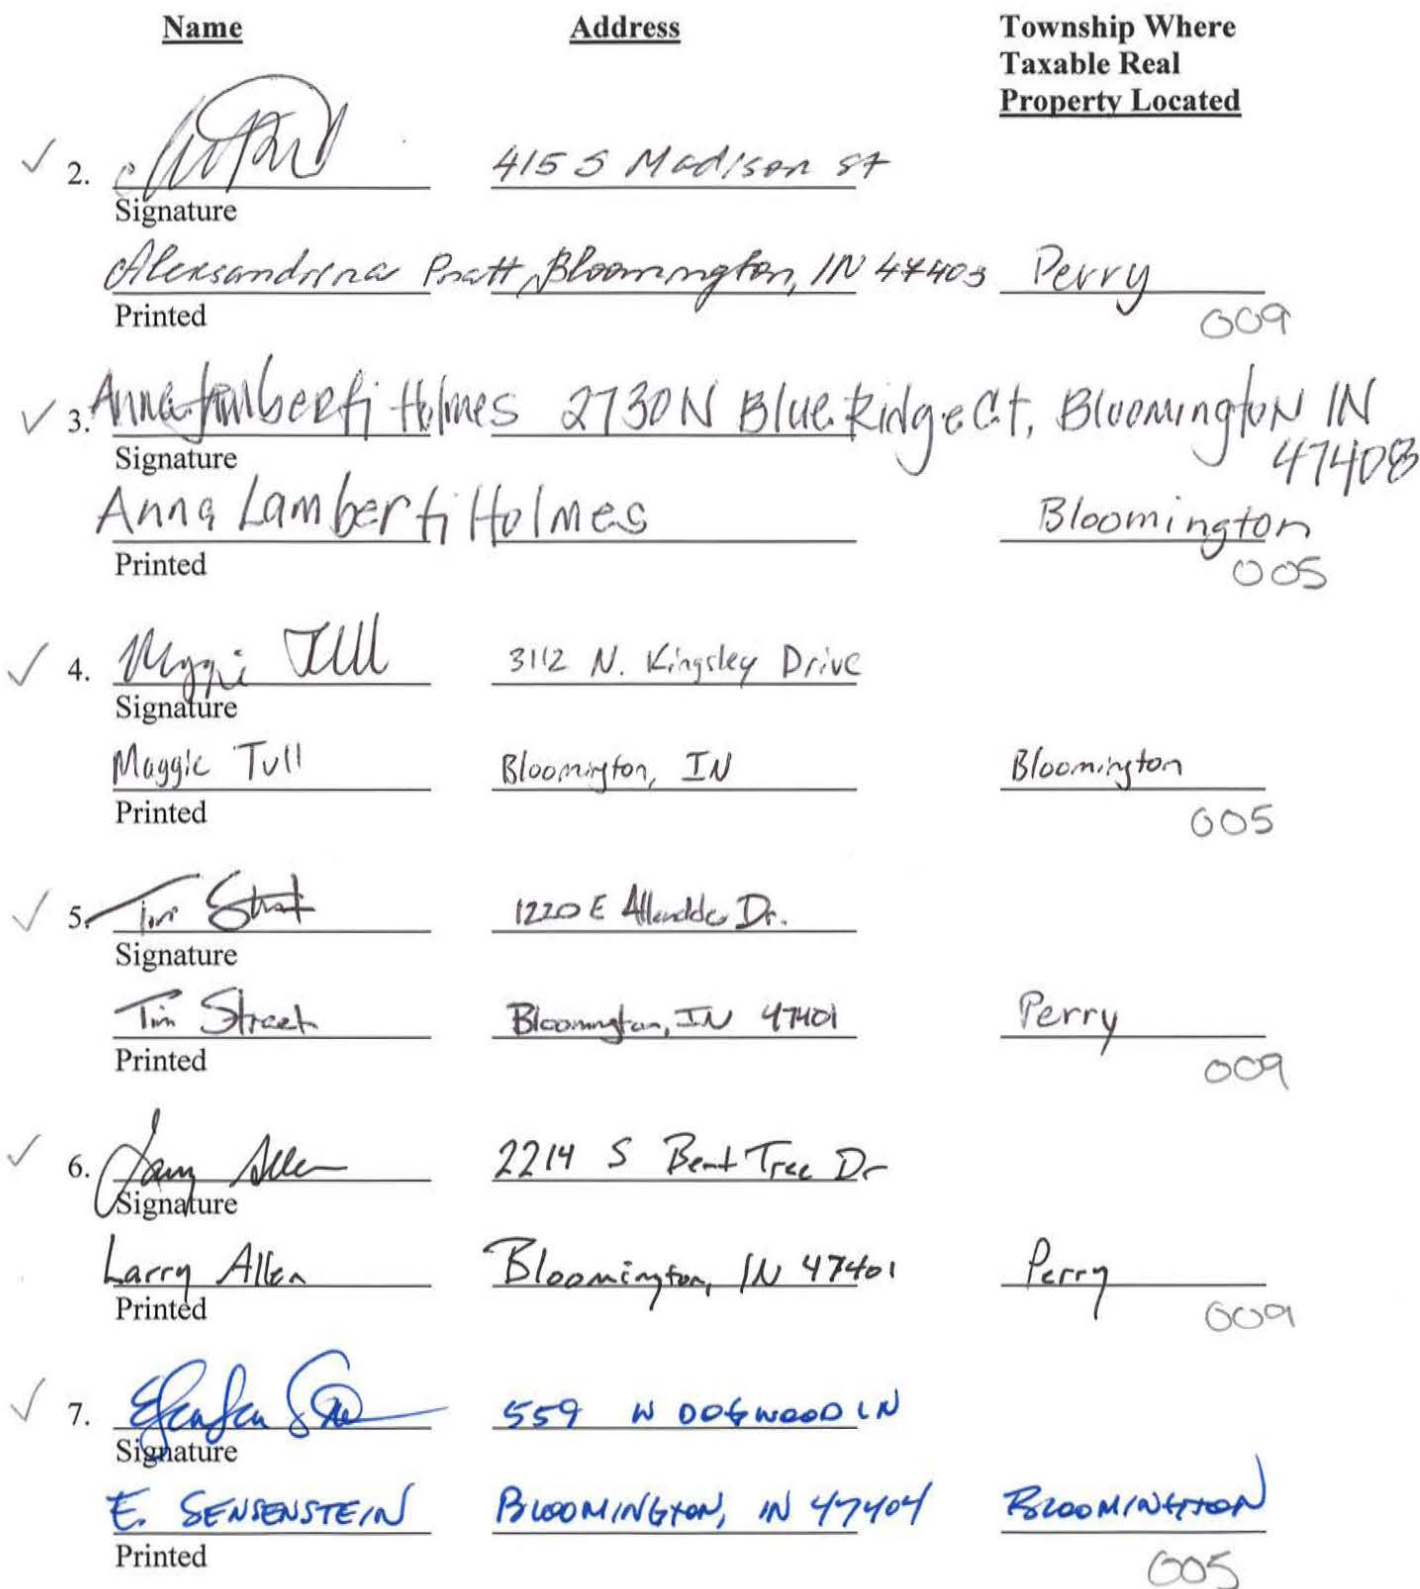 Name Address Township Where
Taxable Real
Property Located
2. 415 S Madison St
Signature
Alexsandrina Pratt, Bloomington, IN 47403 Perry
Printed 009
3. Anna Lamberti Holmes 2730 N Blue Ridge Ct, Bloomington IN
Signature 47408
Anna Lamberti Holmes Bloomington
Printed 005
4. Maggie Tull 3112 N. Kingsley Drive
Signature
Maggie Tull Bloomington, IN Bloomington
Printed 005
5. Tim Street 1220 E Allendale Dr.
Signature
Tim Street Bloomington, IN 47401 Perry
Printed 009
6. Larry Allen 2214 S Bent Tree Dr
Signature
Larry Allen Bloomington, IN 47401 Perry
Printed 009
7. 559 W DOGWOOD LN
Signature
E. SENSENSTEIN BLOOMINGTON, IN 47404 BLOOMINGTON
Printed 005